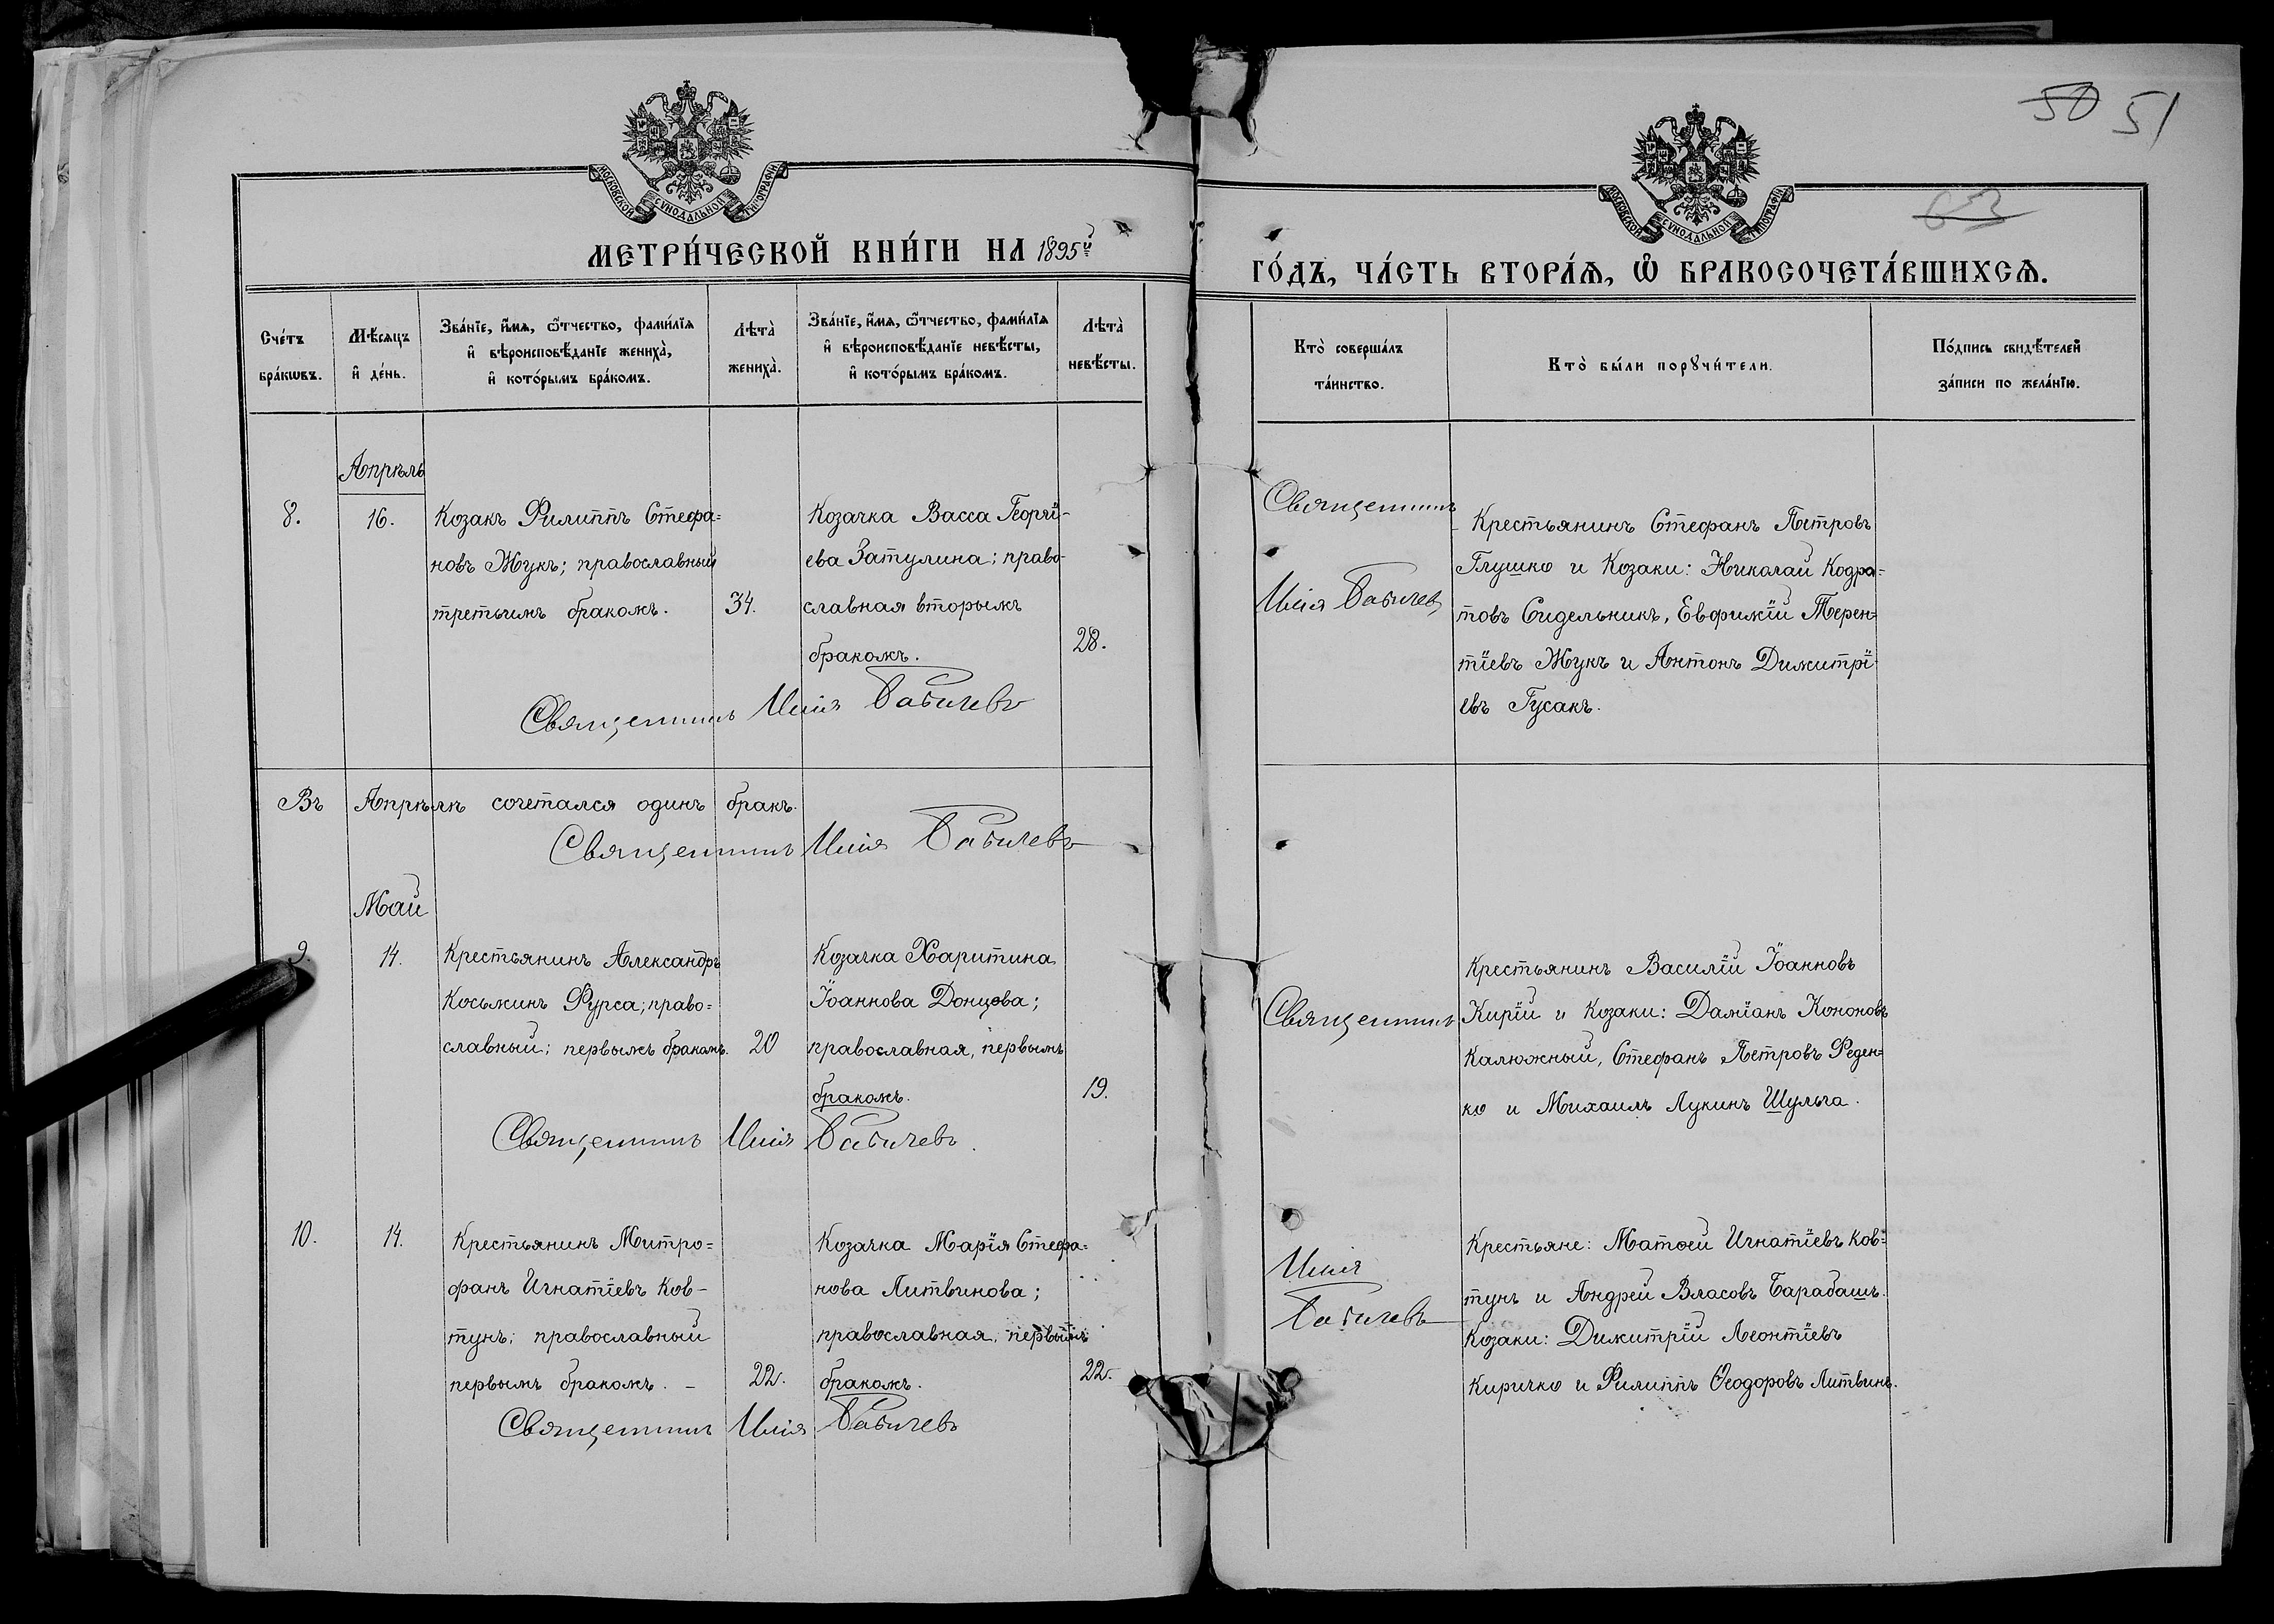 50 51
63
МОСКОВСКОЙ СѴНОДАЛЬНОЙ ТИПОГРАФІИ
МОСКОВСКОЙ СѴНОДАЛЬНОЙ ТИПОГРАФІИ
МЕТРИ́ЧЕСКОЙ КНИ́ГИ НА 1895й
ГО́ДЪ, ЧА́СТЬ ВТОРА́Ѧ, Ѽ БРАКОСОЧЕТА́ВШИХСѦ.
Сче́тъ бра́кѡвъ.
Мѣ́сѧцъ и҆ де́нь.
Зва́нїе, и҆́мѧ, ѻ҆́тчество, фами́лїѧ и҆ вѣроисповѣ́данїе жениха̀, и҆ кото́рымъ бра́комъ.
Лѣта̀ жениха̀.
Зва́нїе, и҆́мѧ, ѻ҆́тчество, фами́лїѧ и҆ вѣроисповѣ́данїе невѣ́сты, и҆ кото́рымъ бра́комъ.
Лѣта̀ невѣ́сты.
Кто̀ соверша́лъ та́инство.
Кто̀ бы́ли порꙋчи́тели.
По́дпись свидѣ́телей за́писи по жела́нїю.
Апрѣль
8.
16.
Козакъ Филиппъ Стефа=
новъ Жукъ; православный
третьимъ бракомъ.
34.
Козачка Васса Георгі-
ева Затулина; право-
славная вторымъ
бракомъ.
28.
Священникъ Илія Бабичевъ
Священникъ
Илія Бабичевъ
Крестьянинъ Стефанъ Петровъ
Глушко и Козаки: Николай Кодра=
товъ Сидельникъ, Евфимій Терен=
тіевъ Жукъ и Антонъ Димитрі-
евъ Гусакъ.
Въ Апрѣлѣ сочетался одинъ бракъ.
Священникъ Илія Бабичевъ
Май
9.
14.
Крестьянинъ Александръ
Косьминъ Фурса; право=
славный; первымъ бракомъ.
20
Козачка Харитина
Іоаннова Донцова;
православная, первымъ
бракомъ.
19.
Священникъ Илія Бабичевъ.
Священникъ
Крестьянинъ Василій Іоанновъ
Кирій и Козаки: Даміанъ Кононовъ
Калюжный, Стефанъ Петровъ Феден=
ко и Михаилъ Лукинъ Шульга.
10.
14.
Крестьянинъ Митро=
фанъ Игнатіевъ Ков-
тунъ; православный
первымъ бракомъ. -
22.
Козачка Марія Стефа=
нова Литвинова;
православная, первымъ
бракомъ.
22.
Священникъ Илія Бабичевъ
Илія
Бабичевъ
Крестьяне: Матѳей Игнатіевъ Ков=
тунъ и Андрей Власовъ Барабашъ.
Козаки: Димитрій Леонтіевъ
Киричко и Филиппъ Ѳеодоровъ Литвинъ.